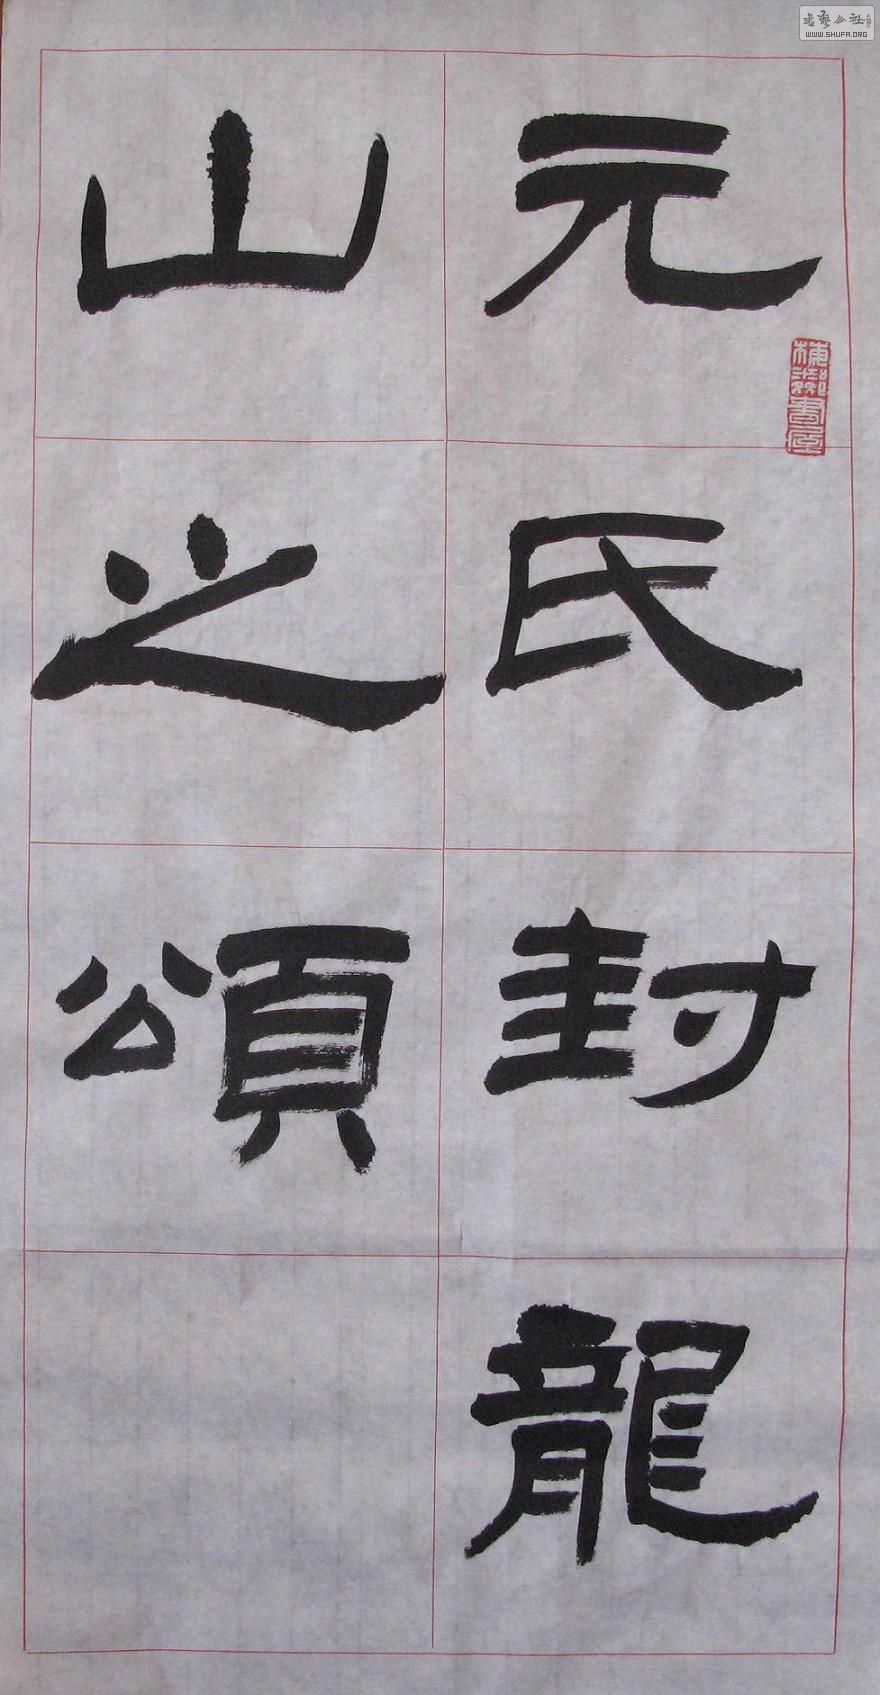 元氏封龍
山之頌
書藝公社
WWW.SHUFA.ORG